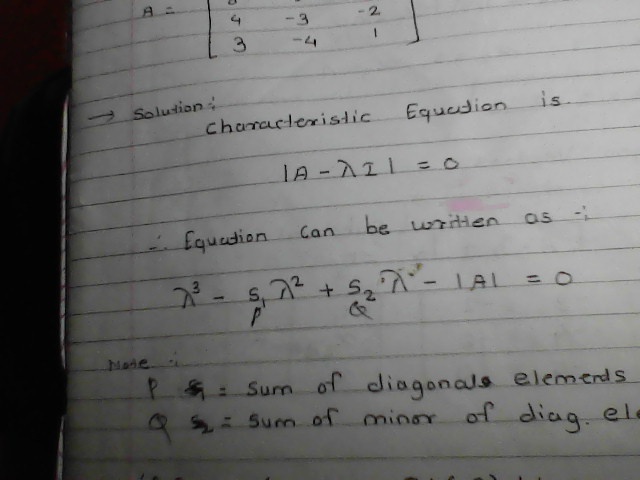 A =
4 -3 -2
3 -4 1
→ Solution :
Characteristic Equation is
|A - λI| = 0
∴ Equation can be written as :
λ³ - S₁λ² + S₂λ - |A| = 0
P Q
Note :
P S₁ = Sum of diagonals elements
Q S₂ = Sum of minor of diag. ele